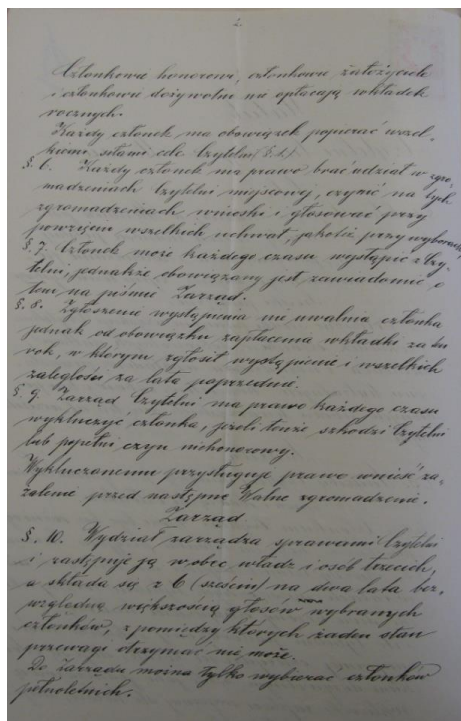 2.
Członkowie honorowi, członkowie założyciele
i członkowie dożywotni nie opłacają wkładek
rocznych.
Każdy członek ma obowiązek popierać wszel-
kiemi siłami cele Czytelni (§ 2.)
§. 6. Każdy członek ma prawo brać udział w zgro-
madzeniach Czytelni miejscowej, czynić na tych
zgromadzeniach wnioski i głosować przy
powzięciu wszelkich uchwał, jakoteż przy wyborach.
§. 7. Członek może każdego czasu wystąpić z Czy-
telni, jednakże obowiązany jest zawiadomić o
tem na piśmie Zarząd.
§. 8. Zgłoszenie wystąpienia nie uwalnia członka
jednak od obowiązku zapłacenia wkładki za ten
rok, w którym zgłosił wystąpienie i wszelkich
zaległości za lata poprzednie.
§. 9. Zarząd Czytelni ma prawo każdego czasu
wykluczyć członka, jeżeli tenże szkodzi Czytelni
lub popełni czyn niehonorowy.
Wykluczonemu przysługuje prawo wnieść za-
żalenie przed następne Walne zgromadzenie.
Zarząd
§. 10. Wydział zarządza sprawami Czytelni
i zastępuje ją wobec władz i osób trzecich,
a składa się z 6 (sześciu) na dwa lata bez-
względną większością głosów wybranych
członków, z pomiędzy których żaden stan
przewagi otrzymać nie może.
Do Zarządu można tylko wybierać członków
pełnoletnich.